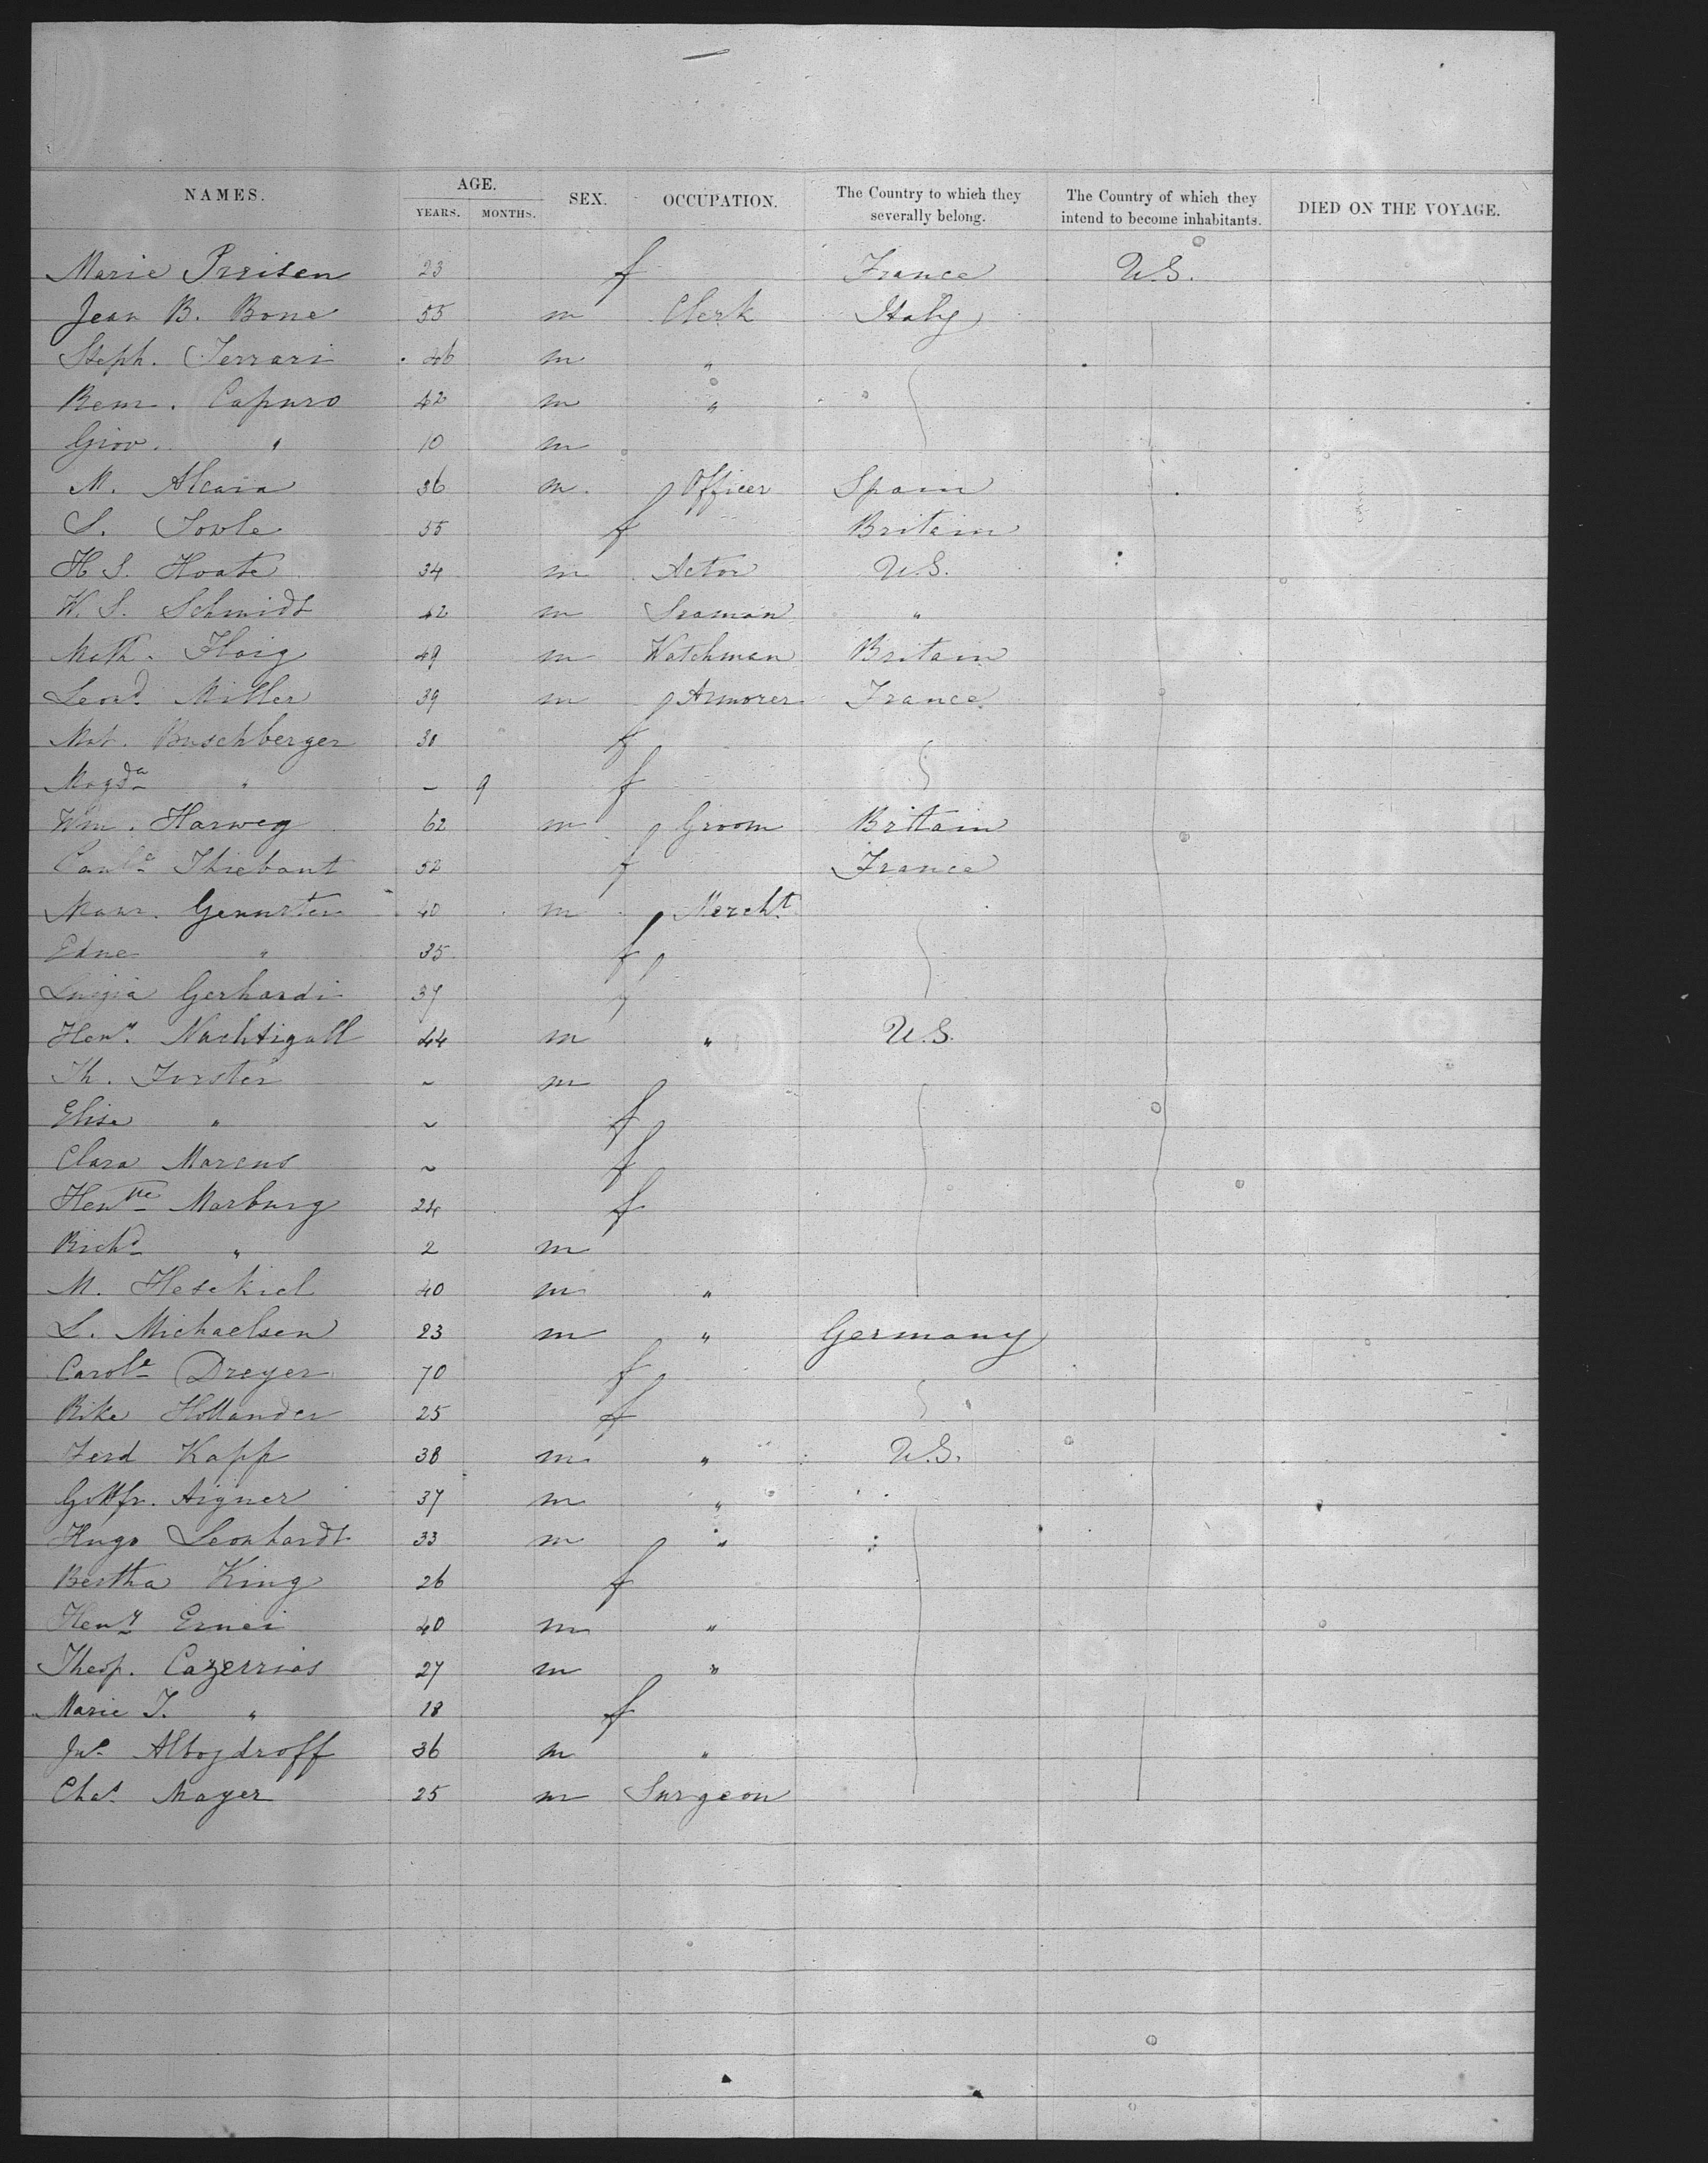 NAMES. AGE. SEX. OCCUPATION. The Country to which they severally belong. The Country of which they intend to become inhabitants. DIED ON THE VOYAGE.
YEARS. MONTHS.
Marie Preisen 23 f France U.S.
Jean B. Bone 55 m Clerk Italy
Steph. Ferrari 46 m "
Rem. Capuro 42 m "
Giov. " 10 m
M. Alcaia 36 m Officer Spain
S. Fowle 55 f Britain
H. S. Hoate 34 m Actor U.S.
W. S. Schmidt 42 m Seaman "
Math. Haig 49 m Watchman Britain
Leond. Miller 39 m Armorer France
Mat. Buschberger 30 f
Magda " - 9 f
Wm. Harweg 62 m Groom Britain
Thiebaut 52 f France
Maur. 40 m Mercht.
Edne " 35 f
Luigia Gerhardi 37 f
Heny. Nachtigall 44 m " U.S.
Th. Forster ~ m
Elise " ~ f
Clara Marcus ~ f
Hentte Marburg 24 f
Richd " 2 m
M. Hesekiel 40 m "
L. Michaelsen 23 m " Germany
Carole Dreyer 70 f
Rike Hollander 25 f
Ferd Kapp 38 m " U.S.
Gottfr. Aigner 37 m "
Hugo Leonhardt 33 m "
Bertha King 26 f
Heny Ernei 40 m "
Theop. Cazerrias 27 m "
Marie T. " 18 f
Jul. Albojdroff 36 m "
Chas. Mayer 25 m Surgeon